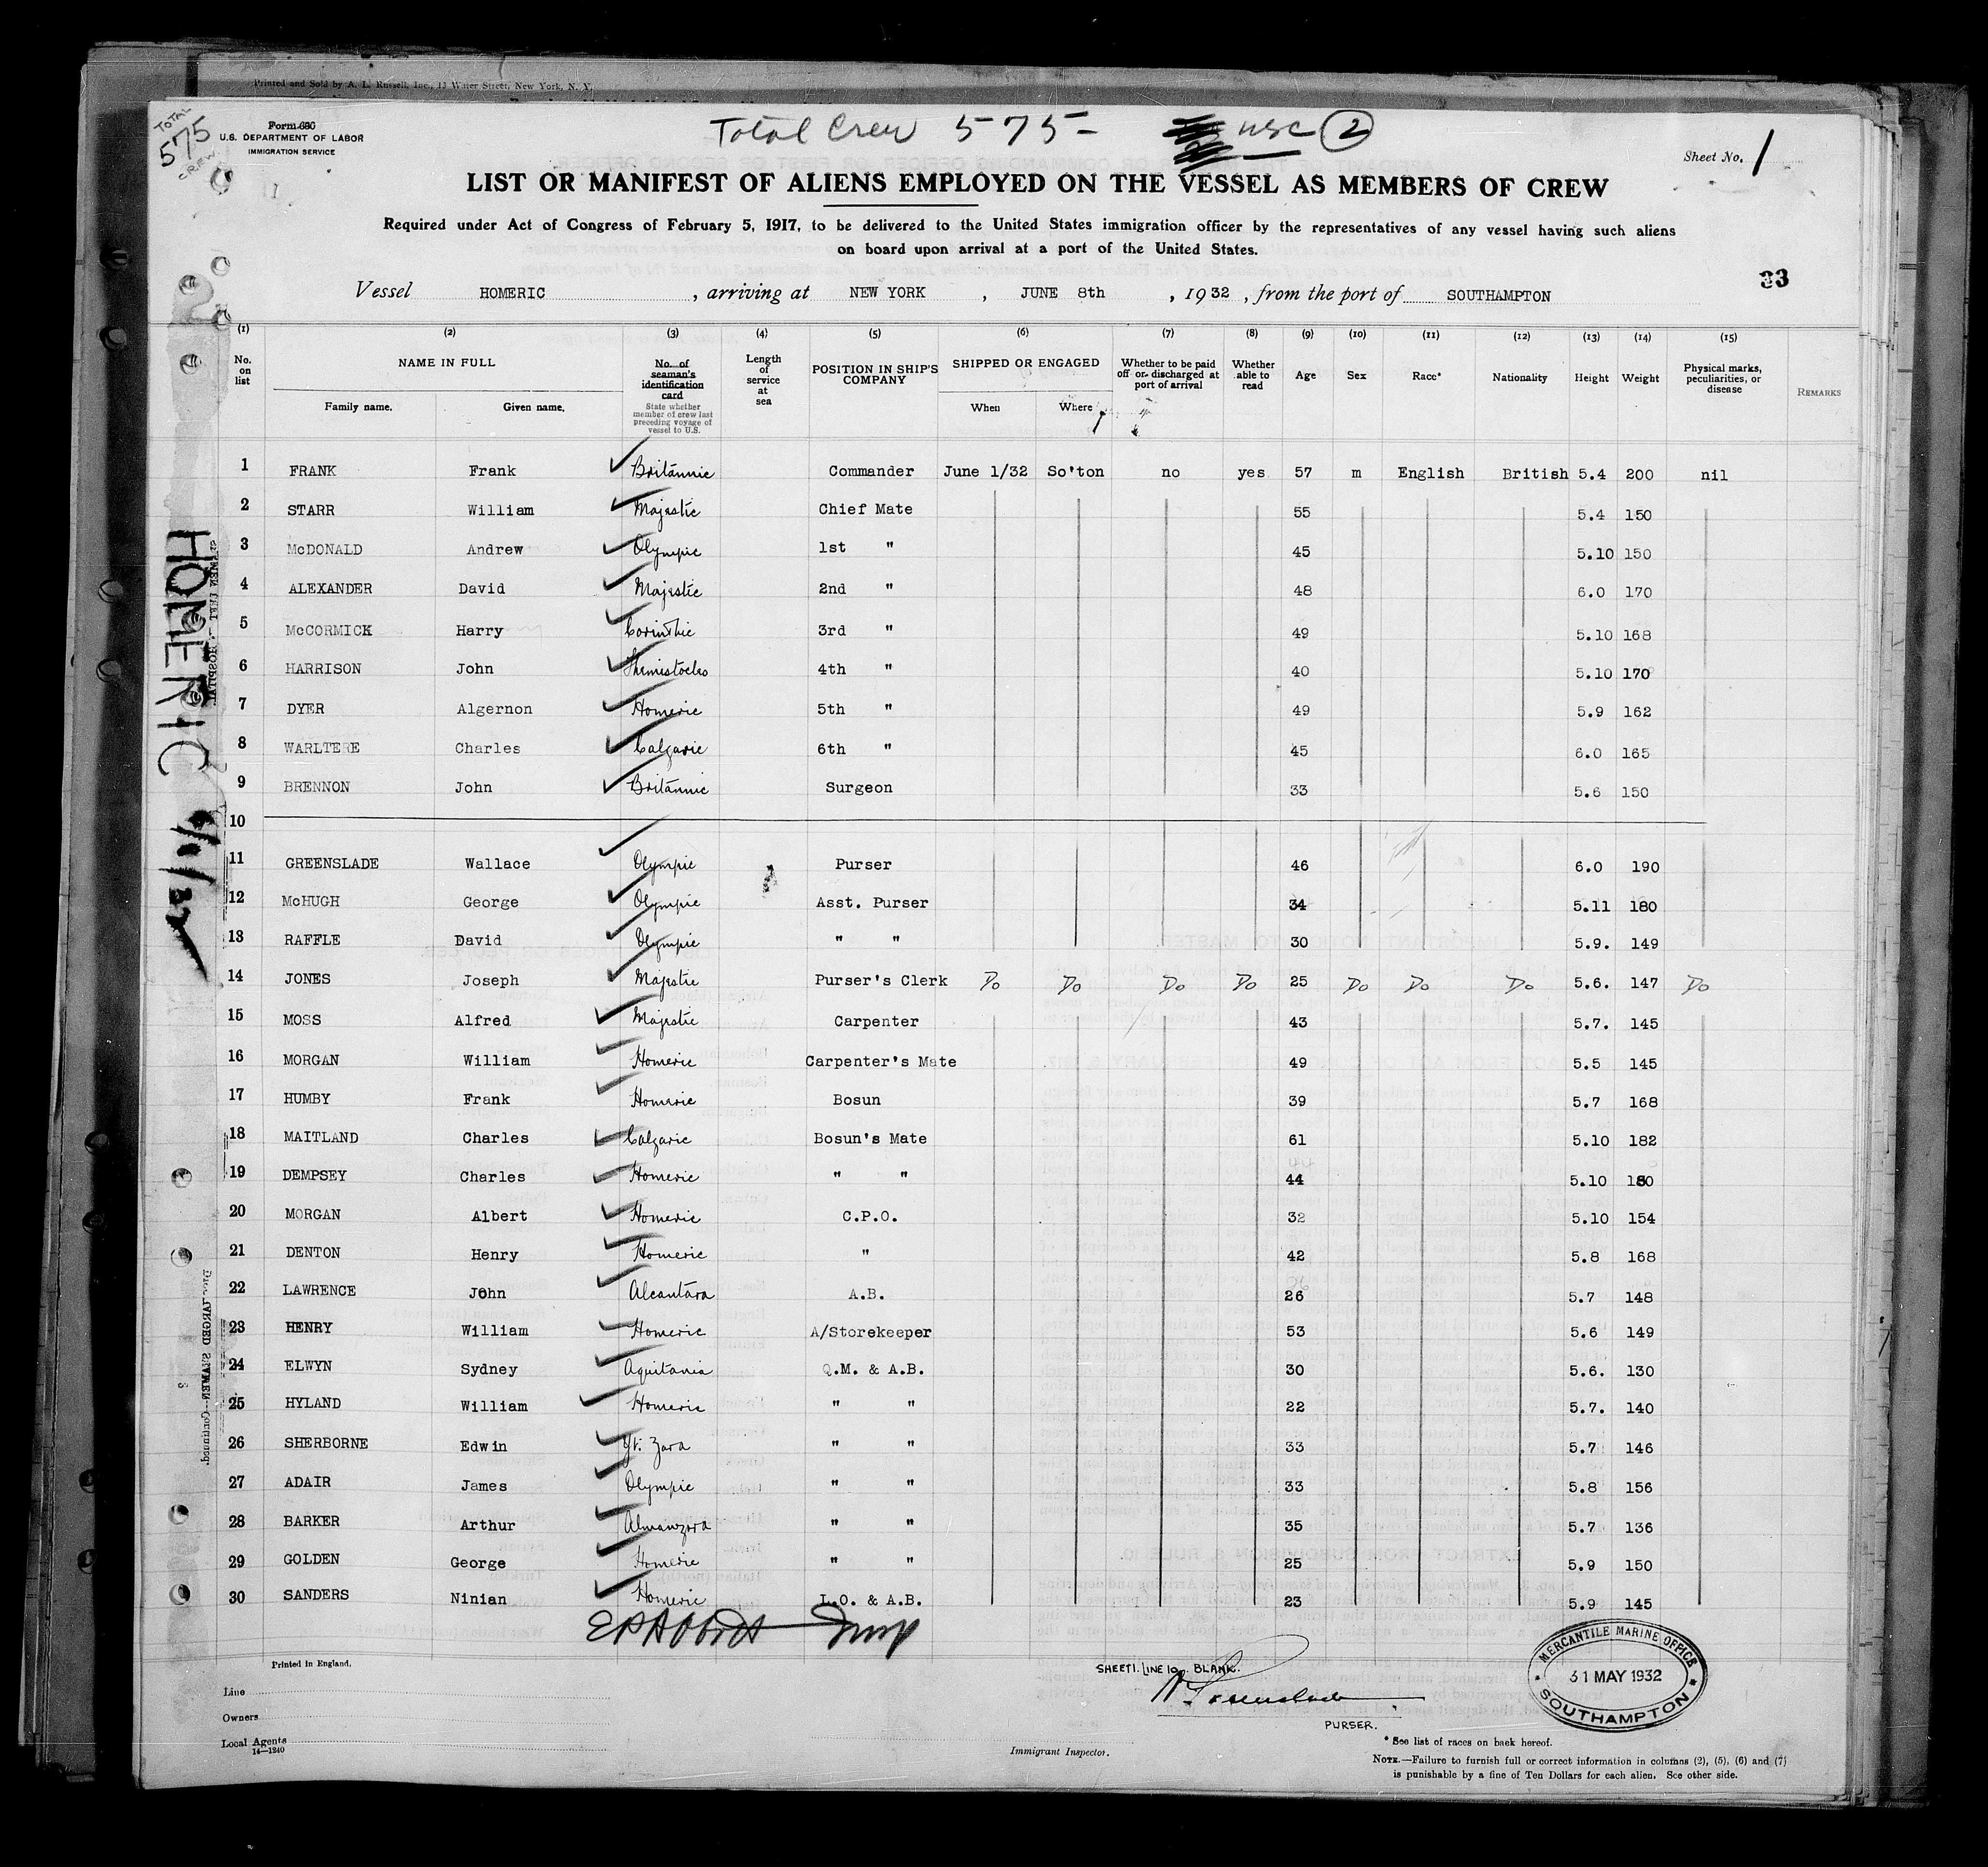 Printed and Sold by A. L. Russell, Inc., 13 Water Street, New York, N. Y.
TOTAL 575 CREW
Form 680
U.S. DEPARTMENT OF LABOR
IMMIGRATION SERVICE
Total Crew 575- usc 2
Sheet No. 1
LIST OR MANIFEST OF ALIENS EMPLOYED ON THE VESSEL AS MEMBERS OF CREW
Required under Act of Congress of February 5, 1917, to be delivered to the United States immigration officer by the representatives of any vessel having such aliens
on board upon arrival at a port of the United States.
33
Vessel HOMERIC, arriving at NEW YORK, JUNE 8th, 1932, from the port of SOUTHAMPTON
(1) (2) (3) (4) (5) (6) (7) (8) (9) (10) (11) (12) (13) (14) (15)
No. on list NAME IN FULL Family name. Given name. No. of seaman's identification card State whether member of crew last preceding voyage of vessel to U.S. Length of service at sea POSITION IN SHIP'S COMPANY SHIPPED OR ENGAGED When Where Whether to be paid off or discharged at port of arrival Whether able to read Age Sex Race* Nationality Height Weight Physical marks, peculiarities, or disease REMARKS
1 FRANK Frank Britannic Commander June 1/32 So'ton no yes 57 m English British 5.4 200 nil
2 STARR William Majestic Chief Mate 55 5.4 150
3 McDONALD Andrew Olympic 1st " 45 5.10 150
4 ALEXANDER David Majestic 2nd " 48 6.0 170
5 McCORMICK Harry Corinthic 3rd " 49 5.10 168
6 HARRISON John Themistocles 4th " 40 5.10 170
7 DYER Algernon Homeric 5th " 49 5.9 162
8 WARLTERE Charles Calgaric 6th " 45 6.0 165
9 BRENNON John Britannic Surgeon 33 5.6 150
10
11 GREENSLADE Wallace Olympic Purser 46 6.0 190
12 McHUGH George Olympic Asst. Purser 34 5.11 180
13 RAFFLE David Olympic " " 30 5.9. 149
14 JONES Joseph Majestic Purser's Clerk Do Do Do Do 25 Do Do Do 5.6. 147 Do
15 MOSS Alfred Majestic Carpenter 43 5.7. 145
16 MORGAN William Homeric Carpenter's Mate 49 5.5 145
17 HUMBY Frank Homeric Bosun 39 5.7 168
18 MAITLAND Charles Calgaric Bosun's Mate 61 5.10 182
19 DEMPSEY Charles Homeric " " 44 5.10
20 MORGAN Albert Homeric C.P.O. 32 5.10 154
21 DENTON Henry Homeric " 42 5.8 168
22 LAWRENCE John Alcantara A.B. 26 5.7 148
23 HENRY William Homeric A/Storekeeper 53 5.6 149
24 ELWYN Sydney Aquitania Q.M. & A.B. 30 5.6. 130
25 HYLAND William Homeric " " 22 5.7. 140
26 SHERBORNE Edwin Zara " " 33 5.7 146
27 ADAIR James Olympic " " 33 5.8 156
28 BARKER Arthur Almanzora " " 35 5.7 136
29 GOLDEN George Homeric " " 25 5.9 150
30 SANDERS Ninian Homeric L.O. & A.B. 23 5.9 145
HOMERIC
Printed in England.
Line
Owners
Local Agents
14—1240
Immigrant Inspector.
SHEET 1. LINE 10. BLANK.
W Greenslade
PURSER.
MERCANTILE MARINE OFFICE
31 MAY 1932
SOUTHAMPTON
* See list of races on back hereof.
NOTE.—Failure to furnish full or correct information in columns (2), (5), (6) and (7)
is punishable by a fine of Ten Dollars for each alien. See other side.